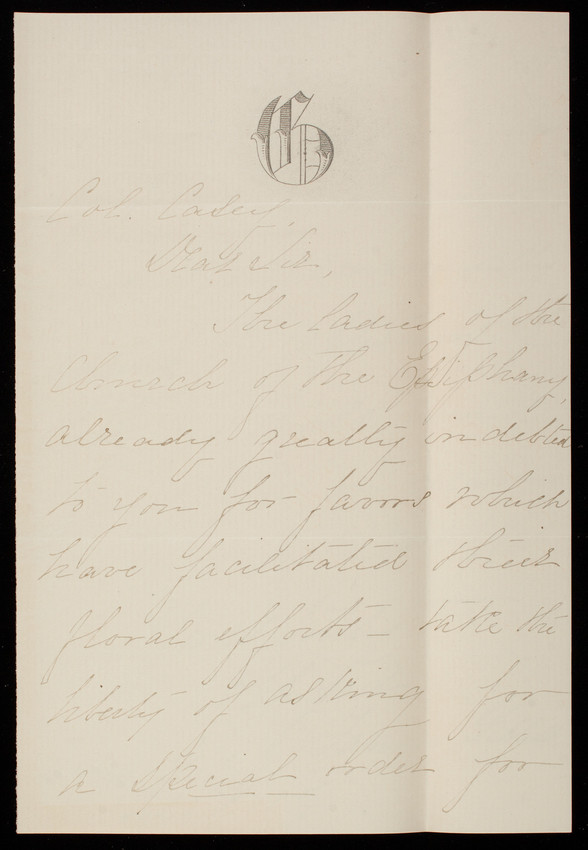 G
Col. Casey,
Dear Sir,
The ladies of the
Church of the Epiphany,
already greatly indebted
to you for favors which
have facilitated their
floral efforts – take the
liberty of asking for
a special order for